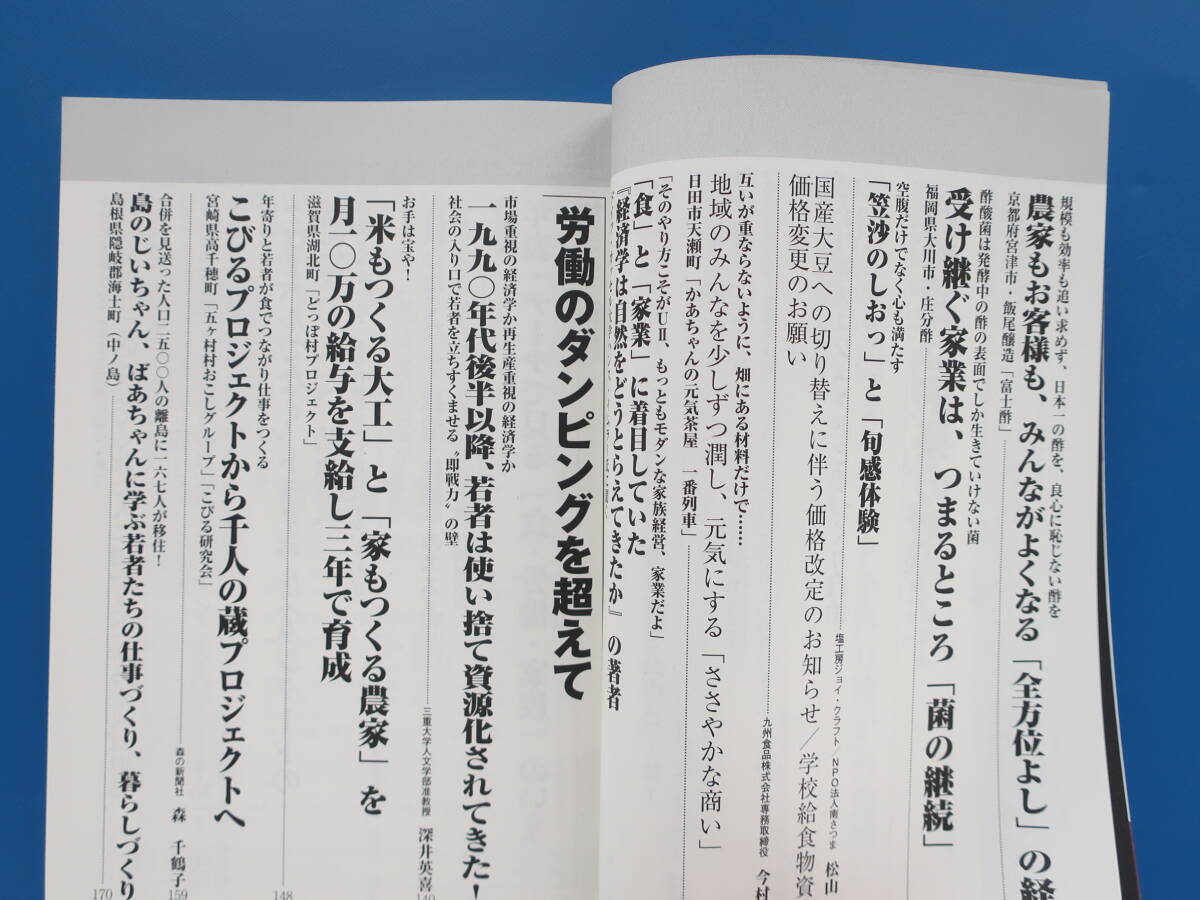 規模も効率も追い求めず、日本一の酢を、良心に恥じない酢を
農家もお客様も、みんながよくなる「全方位よし」の経
京都府宮津市・飯尾醸造「富士酢」
酢酸菌は発酵中の酢の表面でしか生きていけない菌
受け継ぐ家業は、つまるところ「菌の継続」
福岡県大川市・庄分酢
空腹だけでなく心も満たす
「笠沙のしおっ」と「旬感体験」
塩工房ジョイ・クラフト/NPO法人南さつま 松山
国産大豆への切り替えに伴う価格改定のお知らせ/学校給食物資
価格変更のお願い
九州食品株式会社専務取締役 今村
互いが重ならないように、畑にある材料だけで……
地域のみんなを少しずつ潤し、元気にする「ささやかな商い」
日田市天瀬町「かあちゃんの元気茶屋 一番列車」
「そのやり方こそがUⅡ、もっともモダンな家族経営、家業だよ」
「食」と「家業」に着目していた
『経済学は自然をどうとらえてきたか』の著者
労働のダンピングを超えて
市場重視の経済学か再生産重視の経済学か
一九九〇年代後半以降、若者は使い捨て資源化されてきた!
社会の入り口で若者を立ちすくませる〝即戦力〟の壁
三重大学人文学部准教授 深井英喜
140
お手は宝や!
「米もつくる大工」と「家もつくる農家」を
月一〇万の給与を支給し三年で育成
滋賀県湖北町「どっぽ村プロジェクト」
148
年寄りと若者が食でつながり仕事をつくる
こびるプロジェクトから千人の蔵プロジェクトへ
宮崎県高千穂町「五ヶ村村おこしグループ」「こびる研究会」
森の新聞社 森 千鶴子
159
合併を見送った人口二五〇〇人の離島に一六七人が移住!
島のじいちゃん、ばあちゃんに学ぶ若者たちの仕事づくり、暮らしづくり
島根県隠岐郡海士町(中ノ島)
170